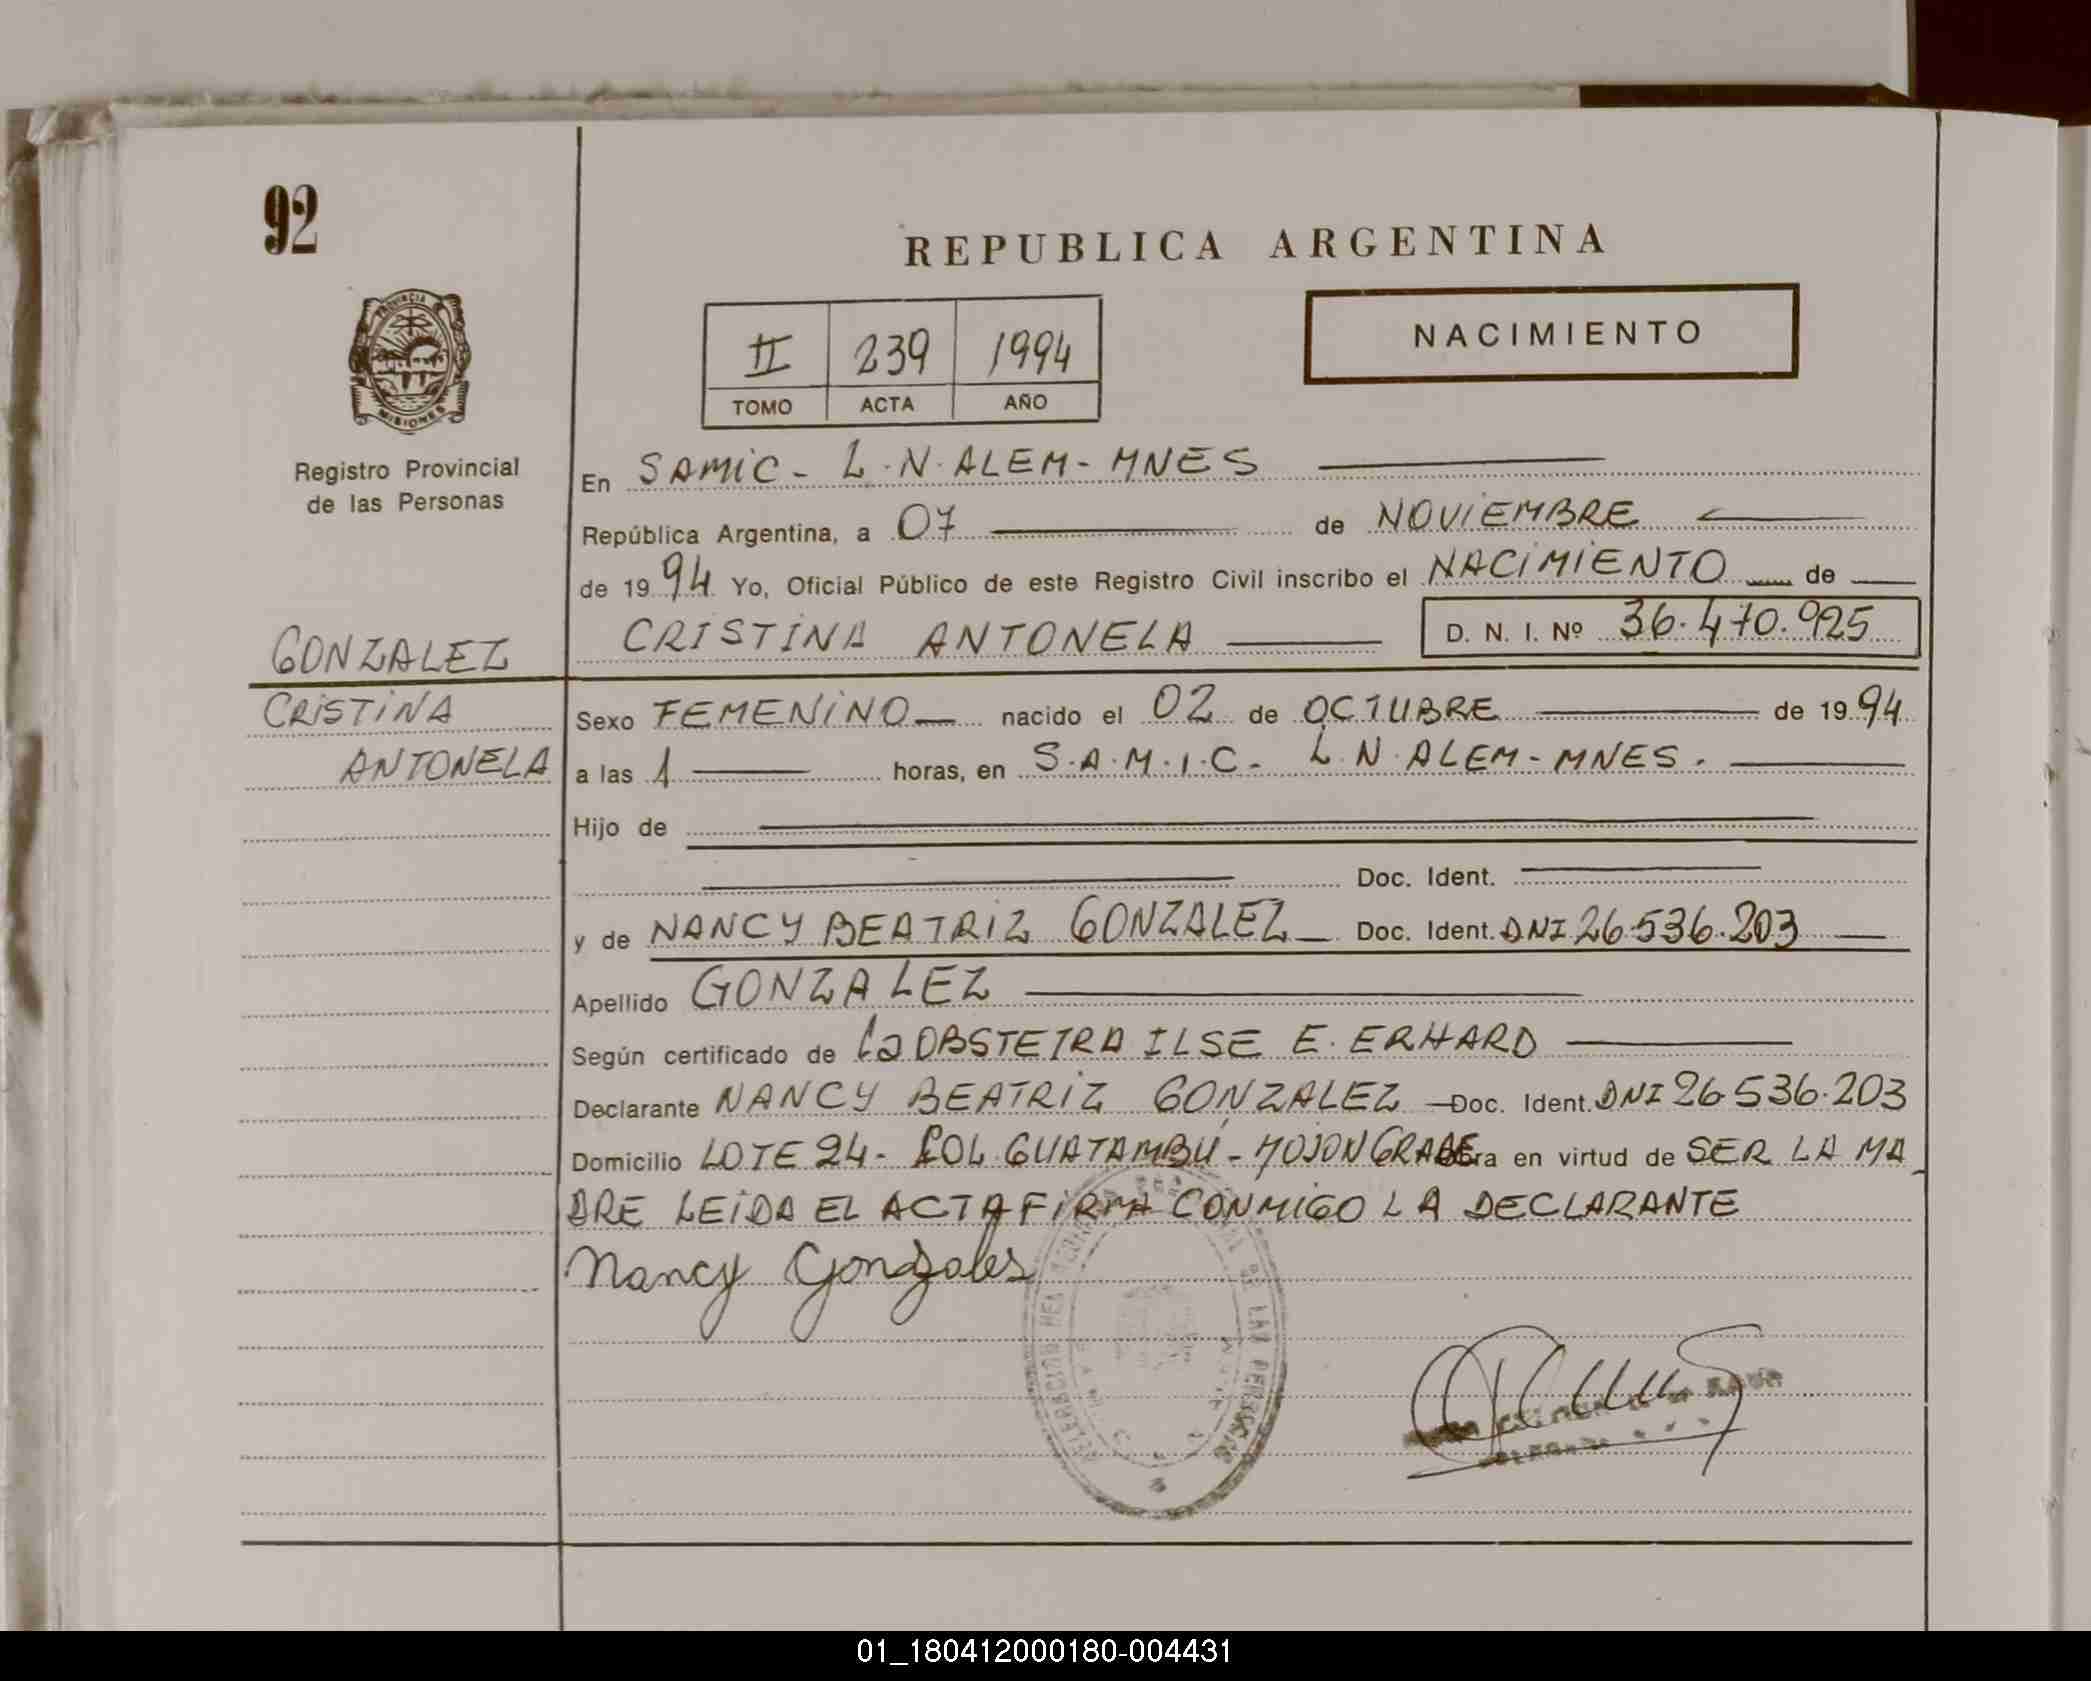 92
REPUBLICA ARGENTINA
PROVINCIA
MISIONES
II 239 1994
TOMO ACTA AÑO
NACIMIENTO
Registro Provincial
de las Personas
En SAMIC - L.N. ALEM - MNES
República Argentina, a 07 de NOVIEMBRE
de 1994 Yo, Oficial Público de este Registro Civil inscribo el NACIMIENTO de
CRISTINA ANTONELA D. N. I. Nº 36.470.925
GONZALEZ
CRISTINA
ANTONELA
Sexo FEMENINO nacido el 02 de OCTUBRE de 1994
a las 1 horas, en S.A.M.I.C. L.N. ALEM - MNES.
Hijo de
Doc. Ident.
y de NANCY BEATRIZ GONZALEZ Doc. Ident. DNI 26.536.203
Apellido GONZALEZ
Según certificado de la OBSTETRA ILSE E. ERHARD
Declarante NANCY BEATRIZ GONZALEZ Doc. Ident. DNI 26.536.203
Domicilio LOTE 24 - COL. GUATAMBÚ - MOJON GRANDE en virtud de SER LA MA
DRE LEIDA EL ACTA FIRMA CONMIGO LA DECLARANTE
Nancy Gonzales
DE LAS PERSONAS
01_180412000180-004431